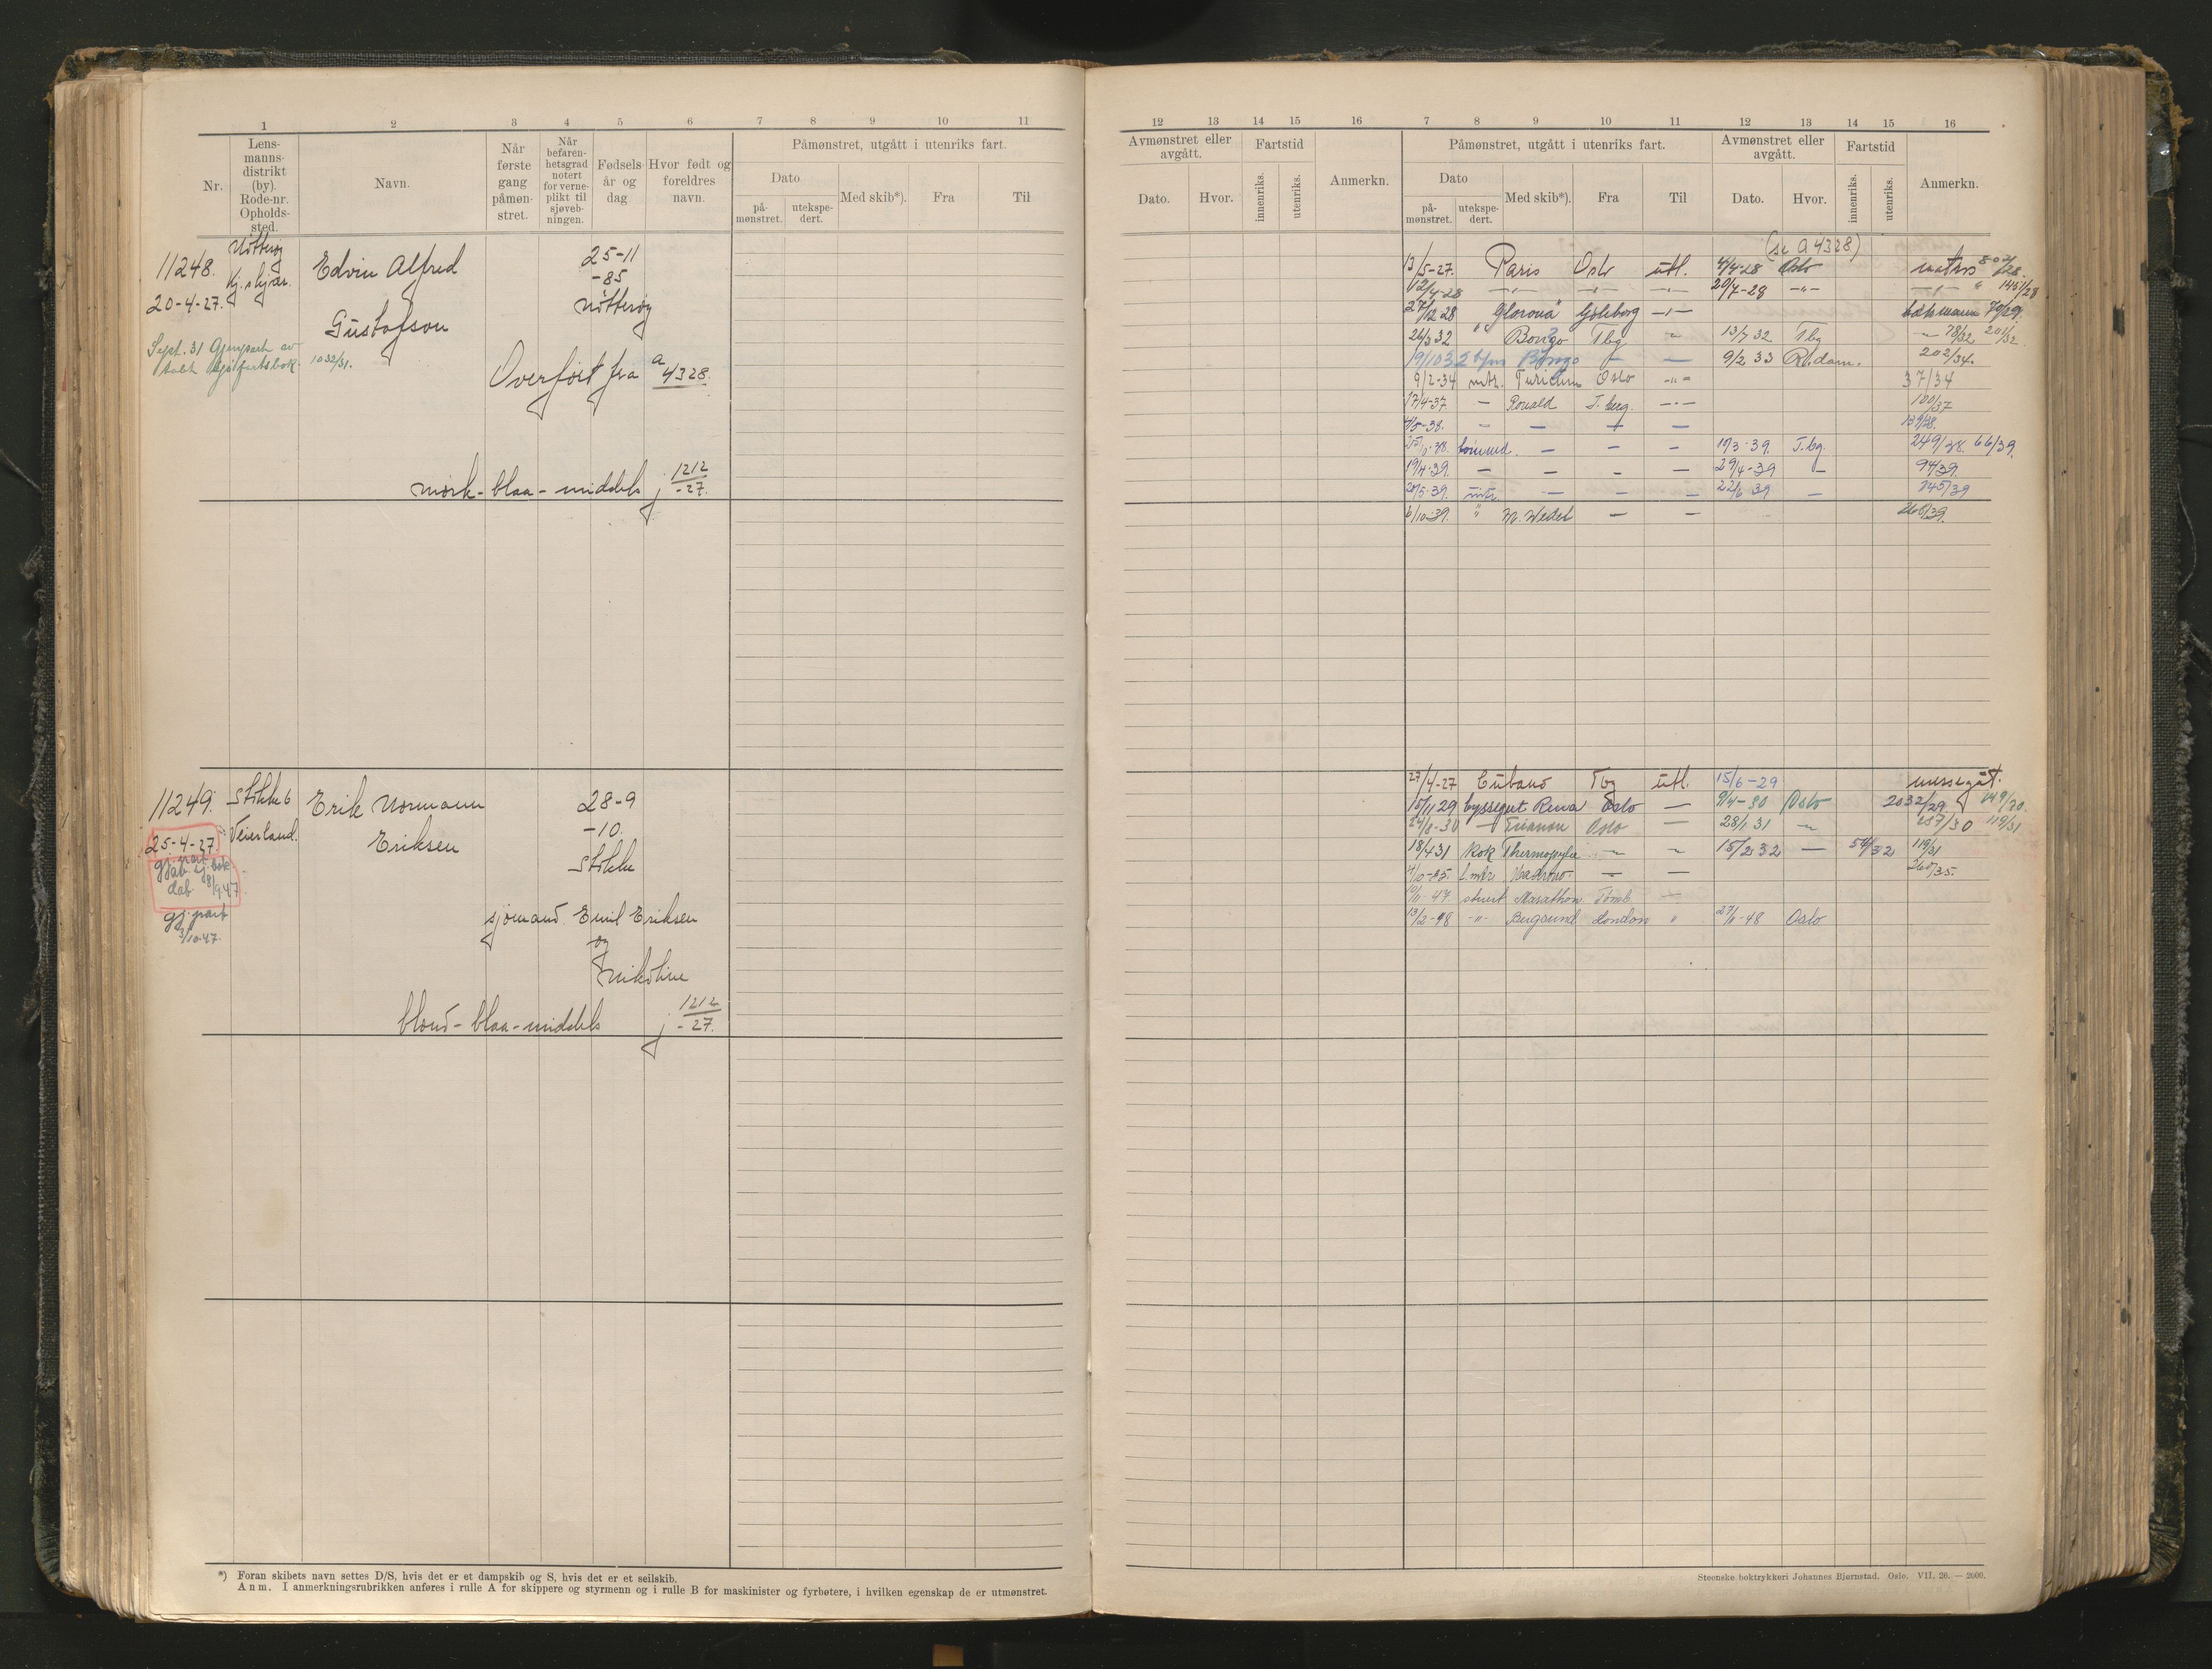 1 2 3 4 5 6 7 8 9 10 11
Nr. Lensmannsdistrikt (by). Rode-nr. Opholdssted. Navn. Når første gang påmønstret. Når befarenhetsgrad notert for verneplikt til sjøvebningen. Fødselsår og dag Hvor født og foreldres navn. Påmønstret, utgått i utenriks fart.
Dato Med skib*). Fra Til
påmønstret. utekspedert.
11248. Nøtterøy Edvin Alfred 25-11
20-4-27. Kj. skjær. -85
Gustafson Nøtterøy
Sept. 31 Gjenpart av
tabt sjøfartsbok. 1032/31.
Overført fra a 4328.
mørk-blaa-middels j 1212/-27.
11249. Stokke 6 Erik Normann 28-9
25-4-27. Veierland. Eriksen -10.
gj. part Stokke
sj. bok
8/9.47
gj. part
3/10.47.
sjømand Emil Eriksen
og
Nikoline
blond-blaa-middels j 1212/-27.
*) Foran skibets navn settes D/S, hvis det er et dampskib og S, hvis det er et seilskib.
Anm. I anmerkningsrubrikken anføres i rulle A for skippere og styrmenn og i rulle B for maskinister og fyrbøtere, i hvilken egenskap de er utmønstret.
12 13 14 15 16 7 8 9 10 11 12 13 14 15 16
Avmønstret eller avgått. Fartstid Anmerkn. Påmønstret, utgått i utenriks fart. Avmønstret eller avgått. Fartstid Anmerkn.
Dato. Hvor. innenriks. utenriks. Dato Med skib*). Fra Til Dato. Hvor. innenriks. utenriks.
påmønstret. utekspedert.
(se a 4328)
13/5-27. Paris Oslo utl. 4/4-28 Oslo matros
12/4-28 -"- -"- -"- 20/7-28 -"- -"- 1451/28
27/12 28 "Glorona" Göteborg -"- 70/29.
26/3 32 Bongo Tbg " 13/7 32 Tbg 78/32 201/32.
19/10 32 Bongo - - 9/2 33 R.dam. 202/34.
9/2-34 mtr. Oslo -"- 37/34
17/4-37. - Ronald T.berg. -"- 100/37
4/5-38. - - - - 139/38.
- - - 17/3-39. T.bg. 249/38. 66/39.
19/4-39. - - - - 29/4-39 - 94/39.
20/5-39. mtr. - - - 22/6 39 - 145/39
6/10-39. " M. Wedel - - 260/39.
27/4-27 Cubano Tbg utl. 15/6-29 messegut.
15/11 29 byssegut Rena Oslo - 9/4-30 Oslo 2032/29 149/30.
24/8-30 - Trianon Oslo - 28/1 31 " 257/30 119/31
18/4 31 Kok Thermopylæ " " 15/2 32 - 54/32 119/31
4/10-35. - - 260/35.
10/11-47. stuert Marathon Tømb. -
13/2-48 -"- Bergsund London " 27/11-48 Oslo
Steenske boktrykkeri Johannes Bjørnstad. Oslo. VII. 26. — 2000.